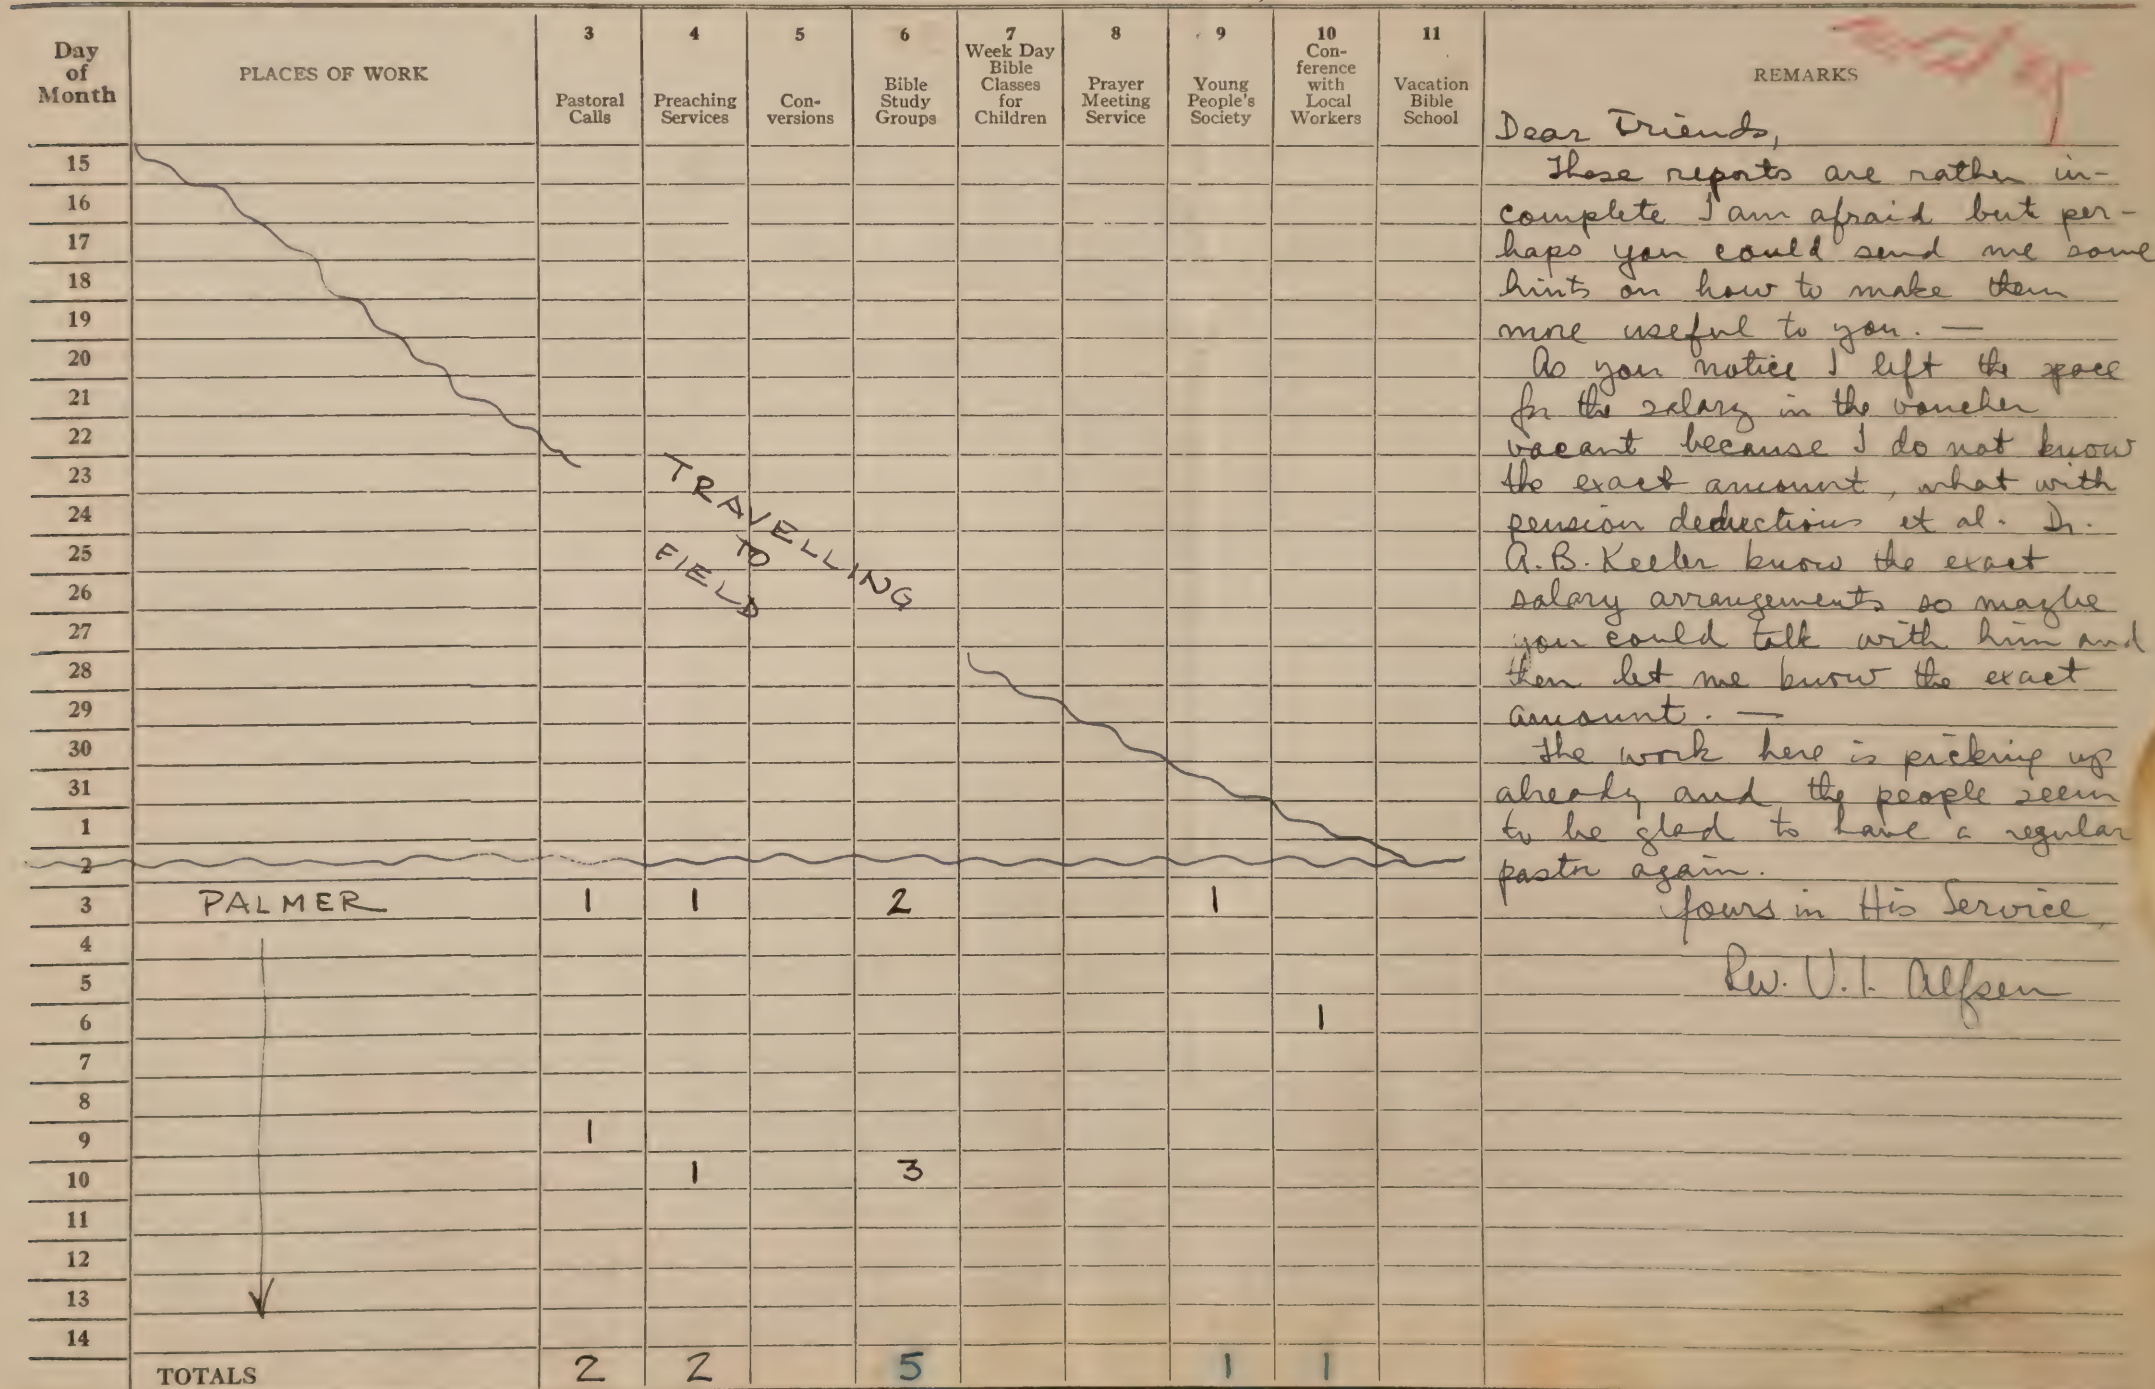 Day of Month
PLACES OF WORK
3 Pastoral Calls
4 Preaching Services
5 Con-versions
6 Bible Study Groups
7 Week Day Bible Classes for Children
8 Prayer Meeting Service
9 Young People's Society
10 Con-ference with Local Workers
11 Vacation Bible School
REMARKS
15
16
17
18
19
20
21
22
23
24
25
26
27
28
29
30
31
1
2
TRAVELLING
TO
FIELD
3 PALMER 1 1 2 1
4
5
6 1
7
8
9 1
10 1 3
11
12
13
14
TOTALS 2 2 5 1 1
Dear Friends,
These reports are rather in-
complete I am afraid but per-
haps you could send me some
hints on how to make them
more useful to you. —
As you notice I left the space
for the salary in the voucher
vacant because I do not know
the exact amount, what with
pension deductions et al. Dr.
A.B. Keeler know the exact
salary arrangements so maybe
you could talk with him and
then let me know the exact
amount. —
The work here is picking up
already and the people seem
to be glad to have a regular
pastor again.
Yours in His Service,
Rev. V.I. Alfsen